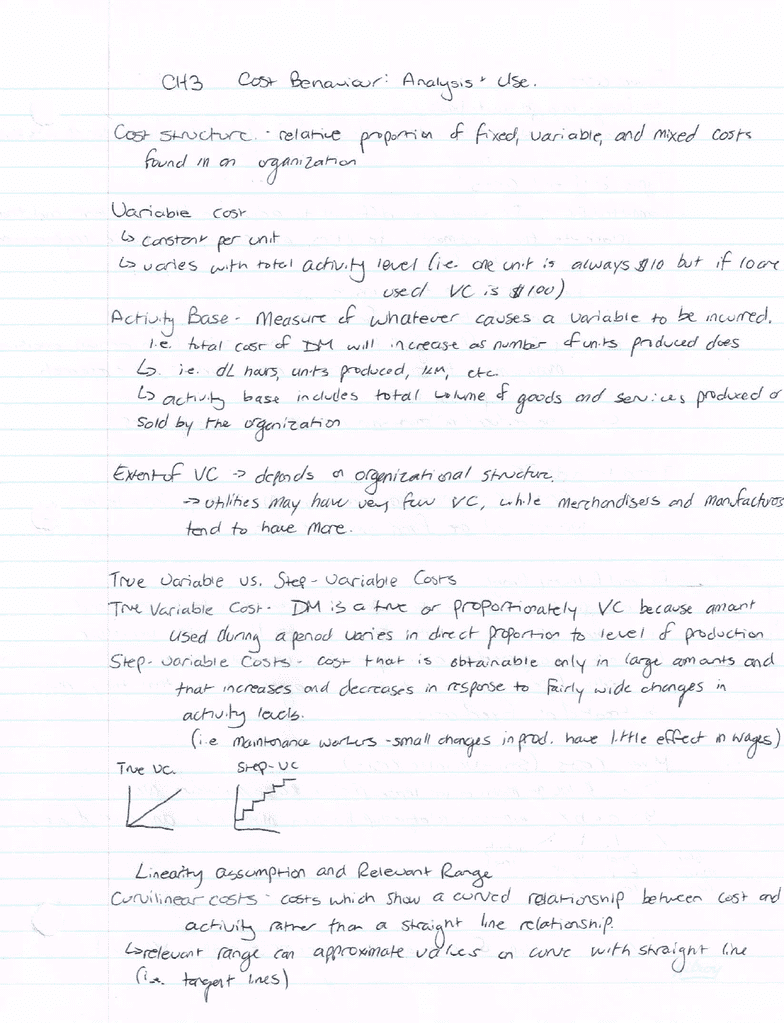 CH3 Cost Behaviour: Analysis + Use.
Cost structure - relative proportion of fixed, variable, and mixed costs
found in an organization
Variable cost
↳ constant per unit
↳ varies with total activity level (i.e. one unit is always $10 but if 10 are
used VC is $100)
Activity Base - Measure of whatever causes a variable to be incurred.
i.e. total cost of DM will increase as number of units produced does
↳ i.e. DL hours, units produced, km, etc.
↳ activity base includes total volume of goods and services produced or
sold by the organization
Extent of VC → depends on organizational structure.
→ utilities may have very few VC, while merchandisers and manufacturers
tend to have more.
True Variable vs. Step-Variable Costs
True Variable Cost - DM is a true or proportionately VC because amount
used during a period varies in direct proportion to level of production
Step-Variable Costs - cost that is obtainable only in large amounts and
that increases and decreases in response to fairly wide changes in
activity levels.
(i.e maintenance workers - small changes in prod. have little effect in wages)
True VC. Step-VC
Linearity assumption and Relevant Range
Curvilinear costs - costs which show a curved relationship between cost and
activity rather than a straight line relationship.
↳ relevant range can approximate values on curve with straight line
(i.e. tangent lines)